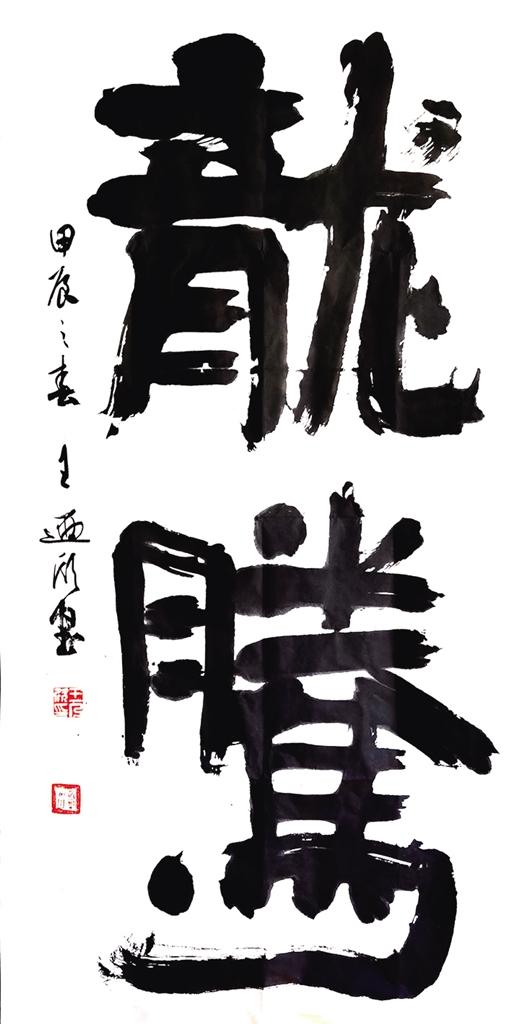 龍騰
甲辰之春 王迺欣書